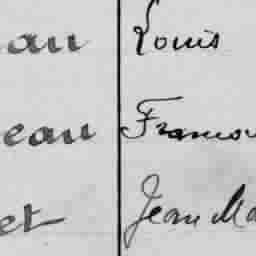 au Louis
eau Franço
et Jean Ma